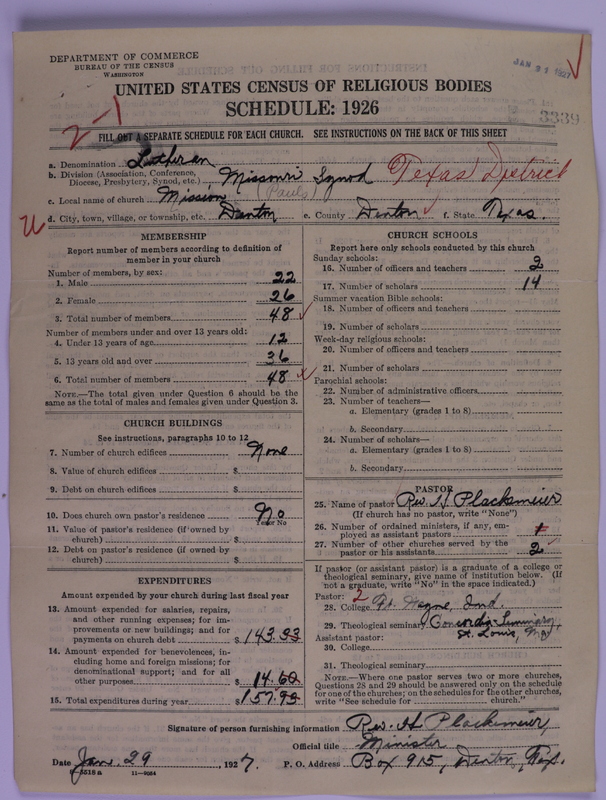 DEPARTMENT OF COMMERCE
BUREAU OF THE CENSUS
WASHINGTON
JAN 31 1927
UNITED STATES CENSUS OF RELIGIOUS BODIES
SCHEDULE: 1926
3339
2-1
FILL OUT A SEPARATE SCHEDULE FOR EACH CHURCH. SEE INSTRUCTIONS ON THE BACK OF THIS SHEET
a. Denomination Lutheran
b. Division (Association, Conference, Diocese, Presbytery, Synod, etc.) Missouri Synod Texas District
c. Local name of church Mission (Pauls)
d. City, town, village, or township, etc. Denton e. County Denton f. State Texas.
MEMBERSHIP
Report number of members according to definition of
member in your church
Number of members, by sex:
1. Male 22
2. Female 26
3. Total number of members 48
Number of members under and over 13 years old:
4. Under 13 years of age 12
5. 13 years old and over 36
6. Total number of members 48
NOTE.—The total given under Question 6 should be the
same as the total of males and females given under Question 3.
CHURCH BUILDINGS
See instructions, paragraphs 10 to 12
7. Number of church edifices None
8. Value of church edifices $
9. Debt on church edifices $
10. Does church own pastor's residence? No
Yes or No
11. Value of pastor's residence (if owned by
church) $
12. Debt on pastor's residence (if owned by
church) $
EXPENDITURES
Amount expended by your church during last fiscal year
13. Amount expended for salaries, repairs,
and other running expenses; for im-
provements or new buildings; and for
payments on church debt $143.33
14. Amount expended for benevolences, in-
cluding home and foreign missions; for
denominational support; and for all
other purposes $14.60
15. Total expenditures during year $157.93
CHURCH SCHOOLS
Report here only schools conducted by this church
Sunday schools:
16. Number of officers and teachers 2
17. Number of scholars 14
Summer vacation Bible schools:
18. Number of officers and teachers
19. Number of scholars
Week-day religious schools:
20. Number of officers and teachers
21. Number of scholars
Parochial schools:
22. Number of administrative officers
23. Number of teachers—
a. Elementary (grades 1 to 8)
b. Secondary
24. Number of scholars—
a. Elementary (grades 1 to 8)
b. Secondary
PASTOR
25. Name of pastor Rev. H Plackemeier
(If church has no pastor, write "None")
26. Number of ordained ministers, if any, em-
ployed as assistant pastors
27. Number of other churches served by the
pastor or his assistants 2
If pastor (or assistant pastor) is a graduate of a college or
theological seminary, give name of institution below. (If
not a graduate, write "No" in the space indicated.)
Pastor: 2
28. College Ft. Wayne, Ind.
29. Theological seminary Concordia-Seminary,
St. Louis, Mo.
Assistant pastor:
30. College
31. Theological seminary
NOTE.—Where one pastor serves two or more churches,
Questions 28 and 29 should be answered only on the schedule
for one of the churches; on the schedules for the other churches,
write "See schedule for church."
Signature of person furnishing information Rev. H Plackemeier,
Official title Minister
Date Jan. 29, 1927. P. O. Address Box 915, Denton, Tex.
8-5518 a 11-9084